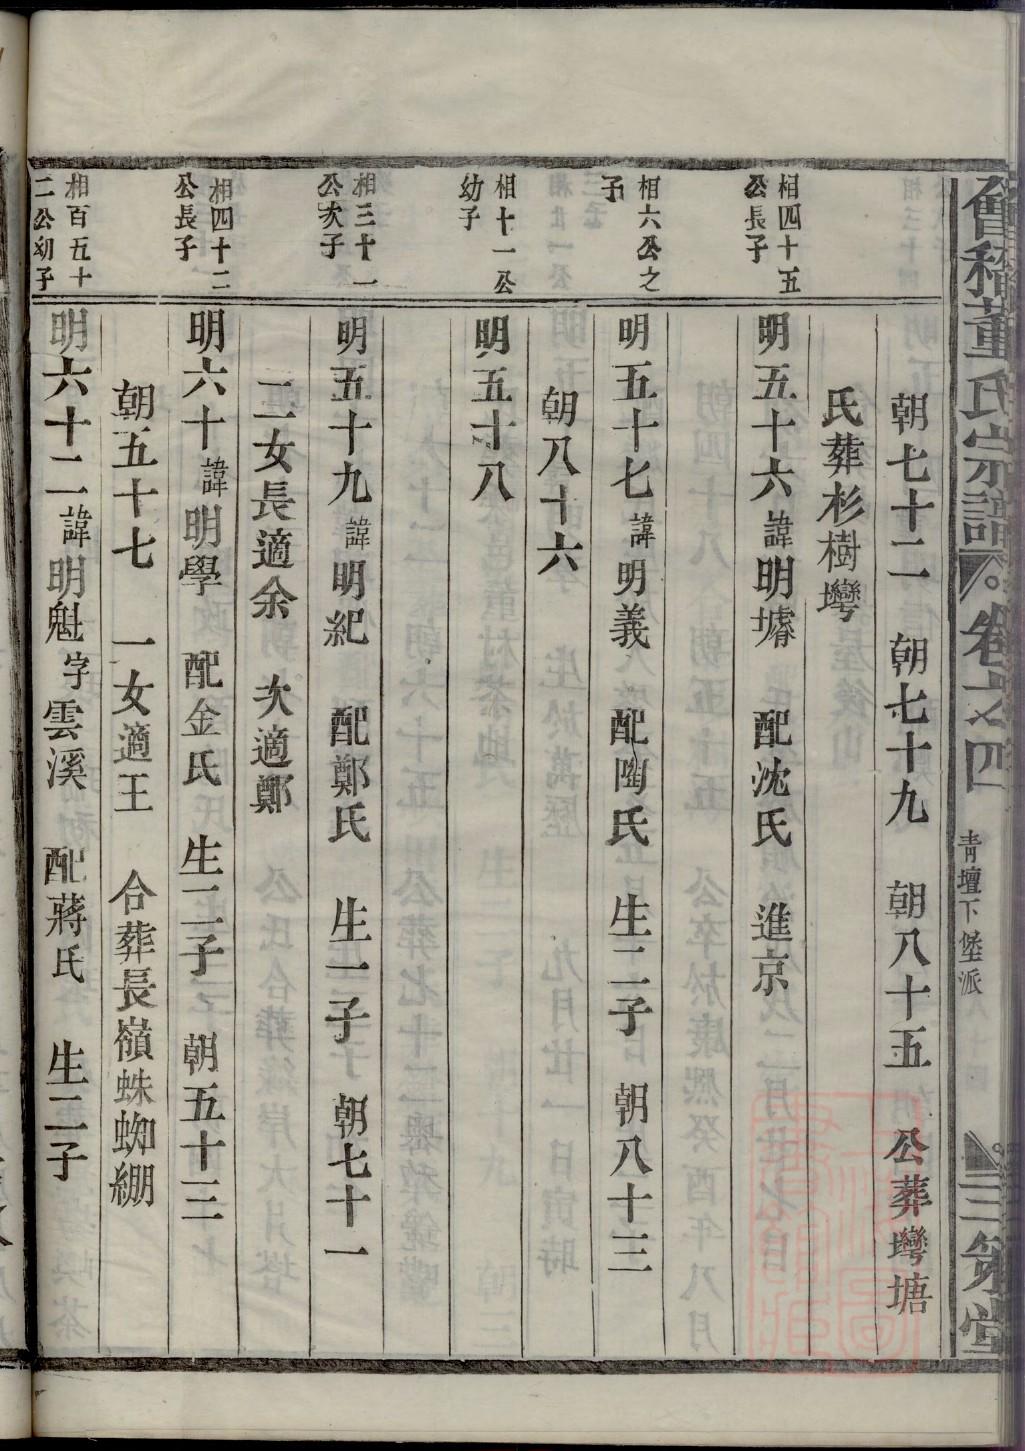 會稽董氏宗譜 卷之四 靑壇下堡派 三策堂
朝七十二 朝七十九 朝八十五 公葬壪塘
氏葬杉樹壪
相四十五公長子
明五十六諱明壿 配沈氏 進京
相六公之子
明五十七諱明義 配陶氏 生二子 朝八十三
朝八十六
相十一公幼子
明五十八
相三十一公次子
明五十九諱明紀 配鄭氏 生一子 朝七十一
二女長適余 次適鄭
相四十二公長子
明六十諱明學 配金氏 生二子 朝五十三
朝五十七 一女適王 合葬長嶺蛛蜘綳
相百五十二公幼子
明六十二諱明魁字雲溪 配蔣氏 生二子